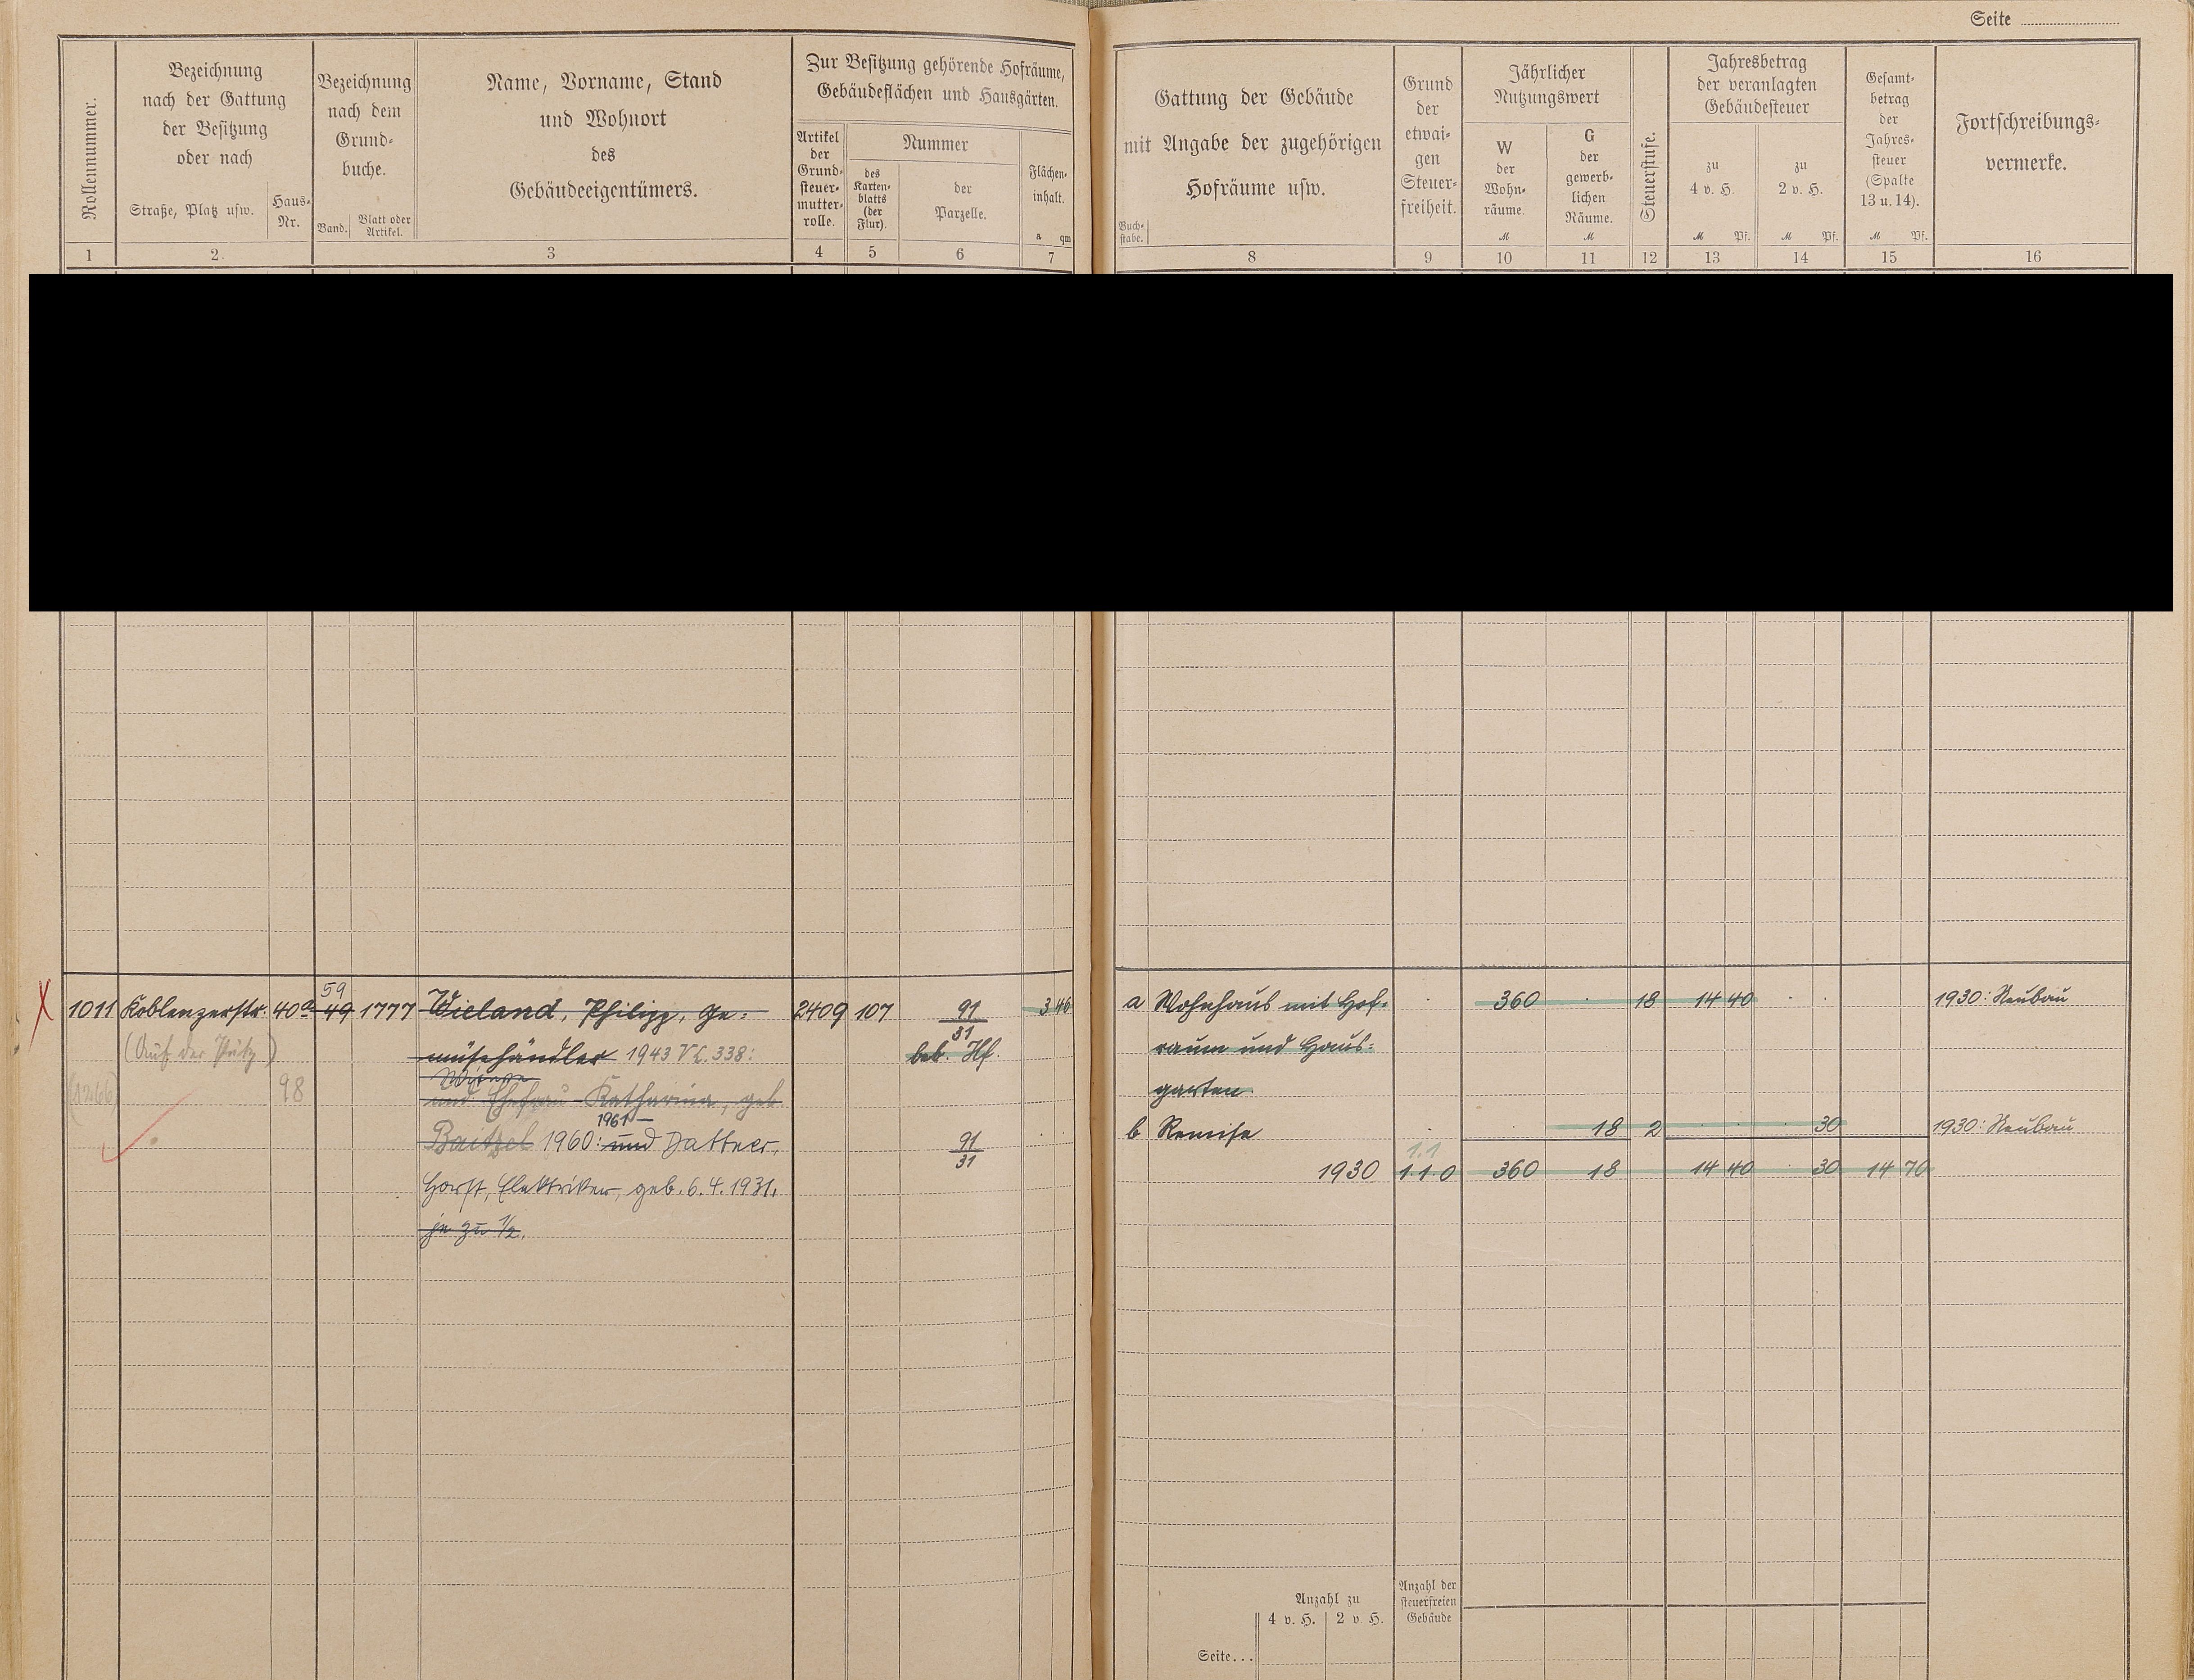 Seite
Rollennummer.
Bezeichnung
nach der Gattung
der Besitzung
oder nach
Straße, Platz usw.
Haus-
Nr.
Bezeichnung
nach dem
Grund-
buche.
Band.
Blatt oder
Artikel.
Name, Vorname, Stand
und Wohnort
des
Gebäudeeigentümers.
Zur Besitzung gehörende Hofräume,
Gebäudeflächen und Hausgärten.
Artikel
der
Grund-
steuer-
mutter-
rolle.
Nummer
des
Karten-
blatts
(der
Flur).
der
Parzelle.
Flächen-
inhalt.
a qm
Gattung der Gebäude
mit Angabe der zugehörigen
Hofräume usw.
Buch-
stabe.
Grund
der
etwai-
gen
Steuer-
freiheit.
Jährlicher
Nutzungswert
W
der
Wohn-
räume.
M
G
der
gewerb-
lichen
Räume.
M
Steuerstufe.
Jahresbetrag
der veranlagten
Gebäudesteuer
zu
4 v. H.
M Pf.
zu
2 v. H.
M Pf.
Gesamt-
betrag
der
Jahres-
steuer
(Spalte
13 u. 14).
M Pf.
Fortschreibungs-
vermerke.
1 2. 3 4 5 6 7 8 9 10 11 12 13 14 15 16
59
1011 Koblenzerstr. 40a 49 1777 Wieland, Philipp, Ge- 2409 107 91/31 3 46 a Wohnhaus mit Hof- 360 18 14 40 1930: Neubau
(Auf der Pütz) müsehändler 1943 VL. 338: beb. Hf. raum und Haus-
Witwe
(1266) 98 und Ehefrau Katharina, geb. garten.
1961
Baitzel 1960: und Dattner, 91/31 b Remise 18 2 30 1930: Neubau
1.1
1930 1.1.0 360 18 14 40 30 14 70
Horst, Elektriker, geb. 6.4.1931.
je zu 1/2.
Anzahl zu
4 v. H. 2 v. H.
Anzahl der
steuerfreien
Gebäude
Seite...